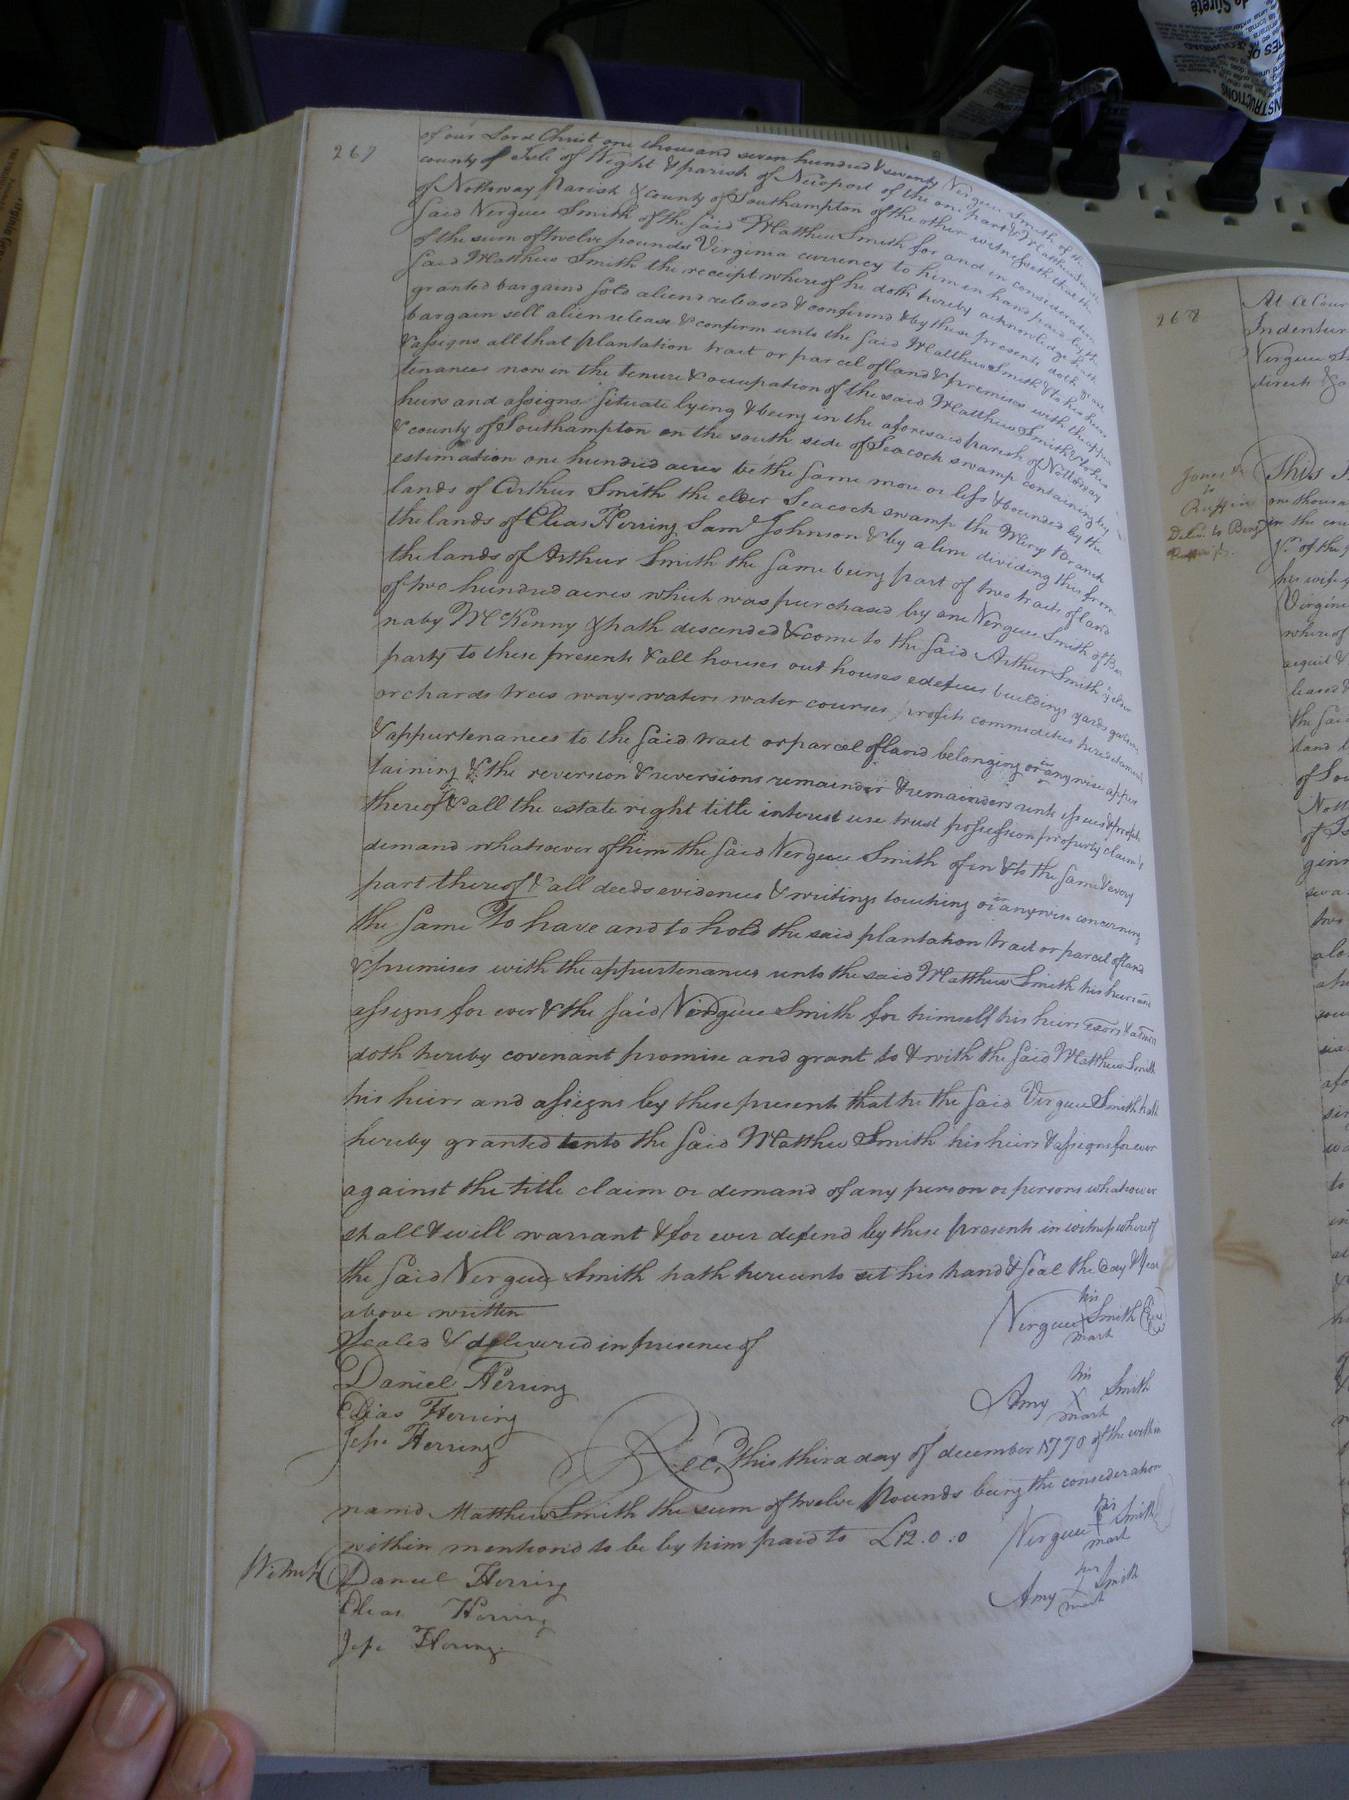 267
of our Lord Christ one thousand seven hundred & seventy Virgus Smith of the
county of Isle of Wight & parish of Newport of the one part & Matthew Smith
of Nottoway Parish & county of Southampton of the other witnesseth that the
said Nergus Smith of the said Matthew Smith for and in consideration
of the sum of twelve pounds Virginia currency to him in hand paid by the
said Matthew Smith the receipt whereof he doth hereby acknowledge hath
granted bargaind sold aliend released & confirmd & by these presents doth
bargain sell alien release & confirm unto the said Matthew Smith & to his heirs
& assigns all that plantation tract or parcel of land & premises with the appur
tenances now in the tenure & occupation of the said Matthew Smith & to his
heirs and assigns situate lying & being in the aforesaid parish of Nottoway
& county of Southampton on the south side of Seacock swamp containing by
estimation one hundred acres be the same more or less & bounded by the
lands of Arthur Smith the elder Seacock swamp the Miry Branch
the lands of Elias Herring Saml Johnson & by a line dividing this from
the lands of Arthur Smith the same being part of two tracts of land
of two hundred acres which was purchased by one Nergus Smith of Bar
naby McKinny & hath descended & come to the said Arthur Smith ye elder
party to these presents & all houses out houses edefices buildings yards gardens
orchards trees ways waters water courses profits commodities hereditaments
& appurtenances to the said tract or parcel of land belonging or in anywise apper
taining & the reversion & reversions remainder & remainders rents issues & profits
thereof & all the estate right title interest use trust possession property claim &
demand whatsoever of him the said Nergus Smith of in & to the same & every
part thereof & all deeds evidences & writings touching or in anywise concerning
the same To have and to hold the said plantation tract or parcel of land
& premises with the appurtenances unto the said Matthew Smith his heirs and
assigns for ever & the said Nergus Smith for himself his heirs exors & admrs
doth hereby covenant promise and grant to & with the said Matthew Smith
his heirs and assigns by these presents that he the said Virgus Smith hath
hereby granted unto the said Matthew Smith his heirs & assigns for ever
against the title claim or demand of any person or persons whatsoever
shall & will warrant & for ever defend by these presents in witness whereof
the said Nergus Smith hath hereunto set his hand & seal the day & year
above written
Nergus his X mark Smith
Sealed & delivered in presence of
Daniel Herring
Amy his X mark Smith
Elias Herring
Jesse Herring
Rec. this third day of december 1770 of the within
namd Matthew Smith the sum of twelve Pounds being the consideration
within mentiond to be by him paid to £12.0:0
Nergus his mark Smith
Witness Daniel Herring
Amy her mark Smith
Elias Herring
Jesse Herring
268
At a Cour
Indentur
Nergus S
directs
Jones &
to
Ruffin
This
one thousa
in the cou
of the
his wife
Virgini
where of
acquit &
leased &
the said
land
of So
Nott
of
gini
swa
two
alo